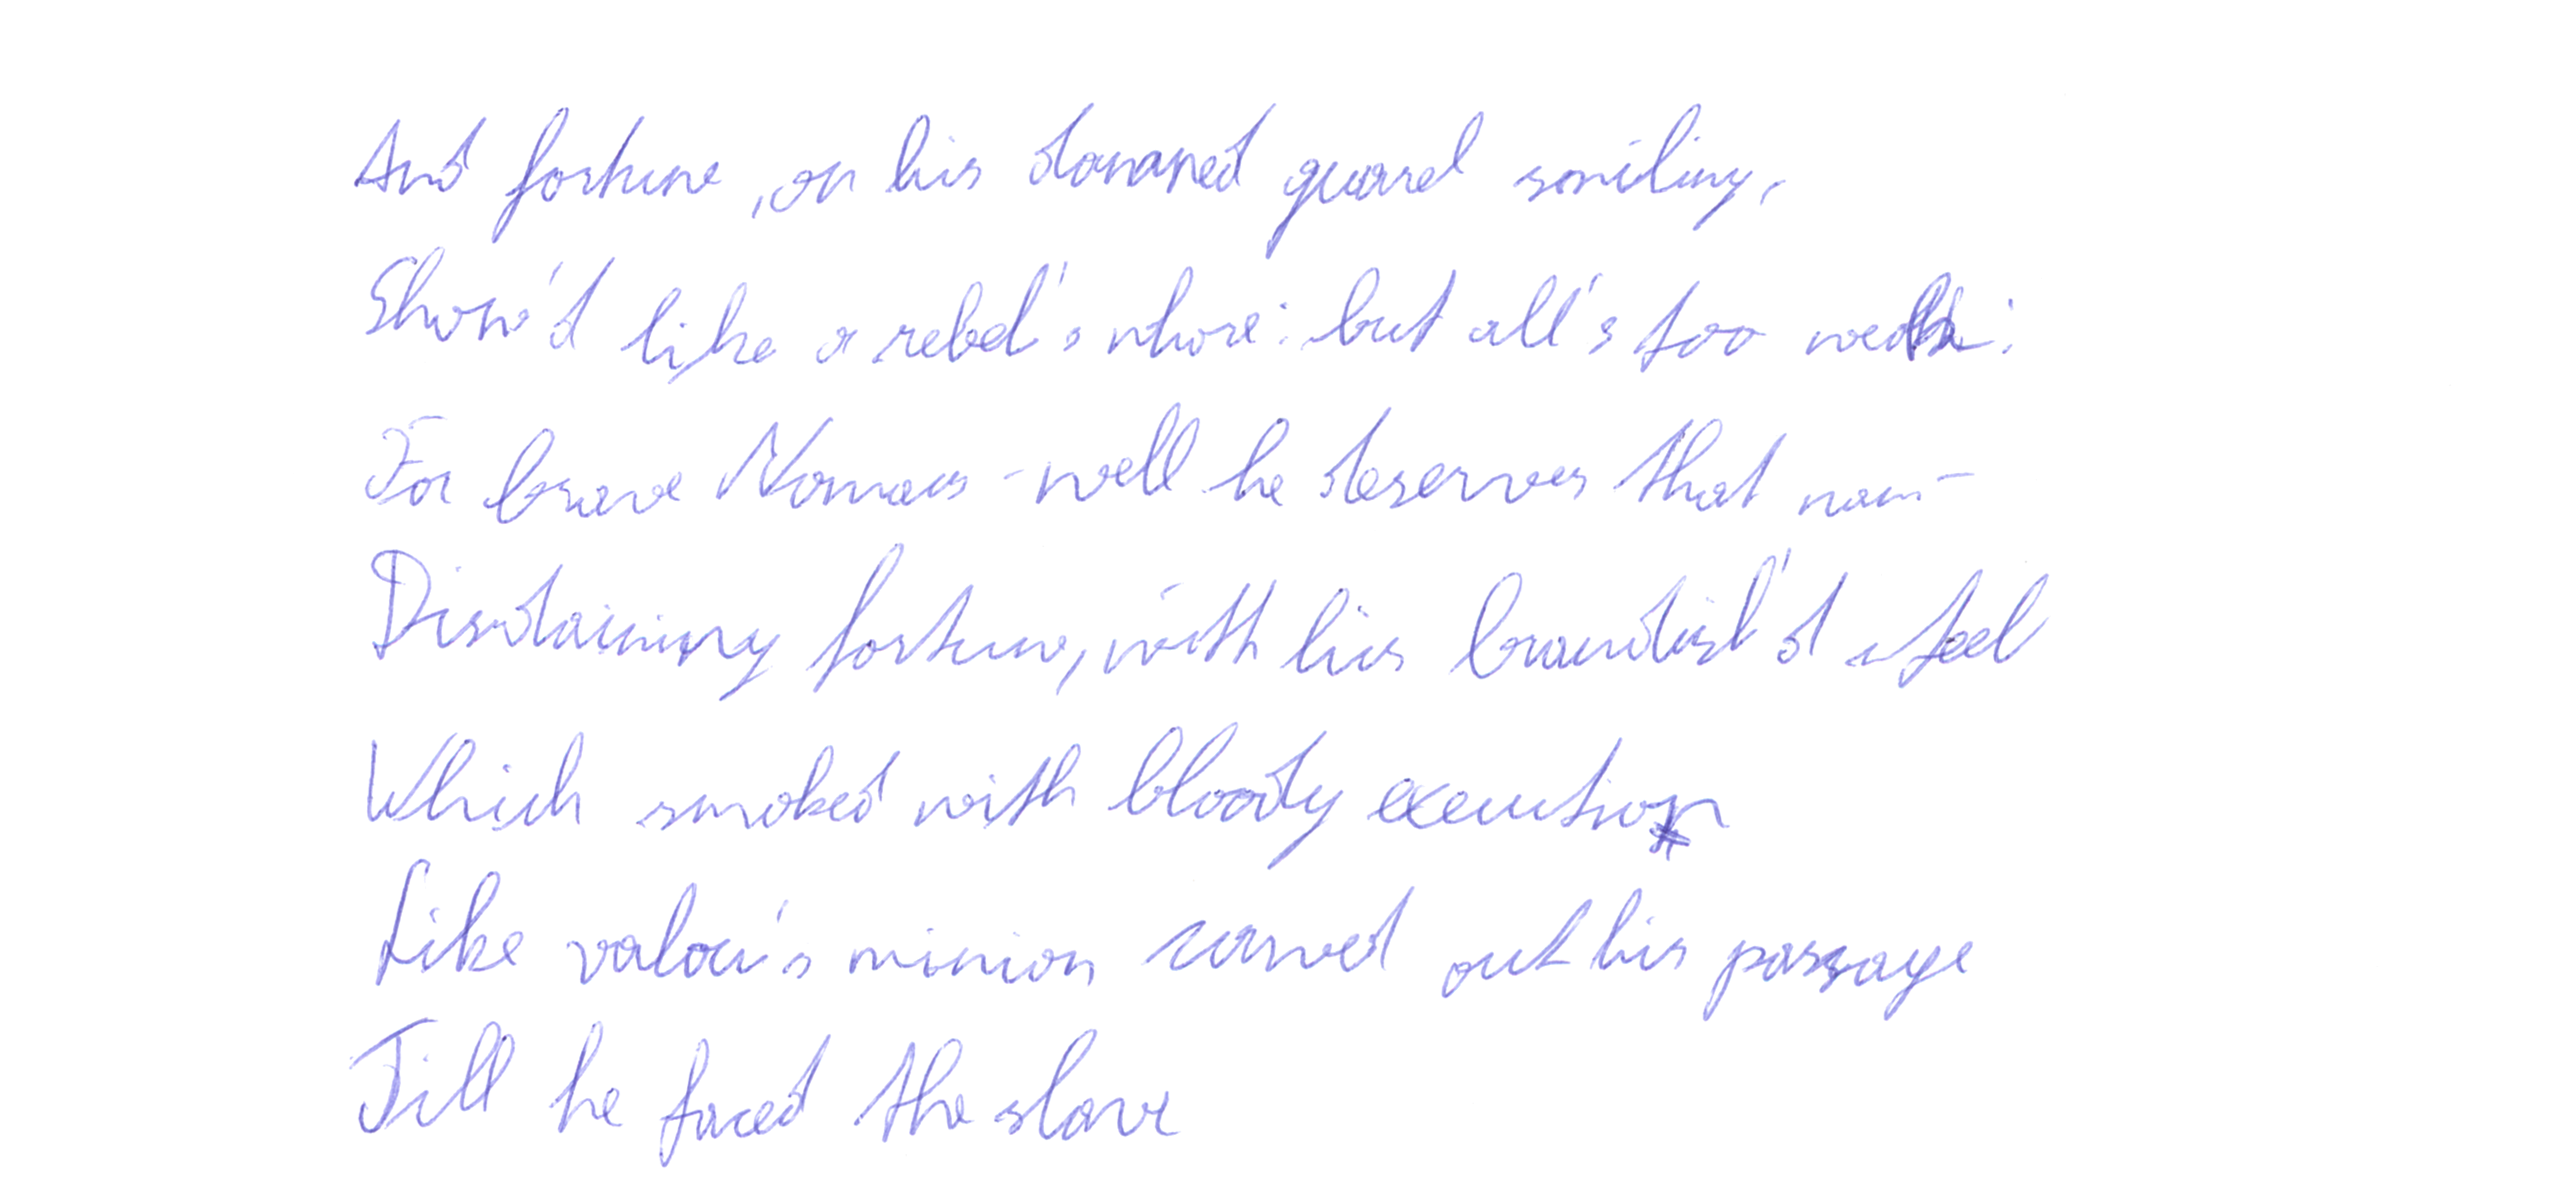 And fortune, on his damned quarrel smiling,
Show'd like a rebel's whore: but all's too weak:
For brave - well he deserves that nam-
Disdaining fortune, with his brandish'd steel
Which smoked with bloody execution
Like valou's minion carved out his passage
Till he faced the slave